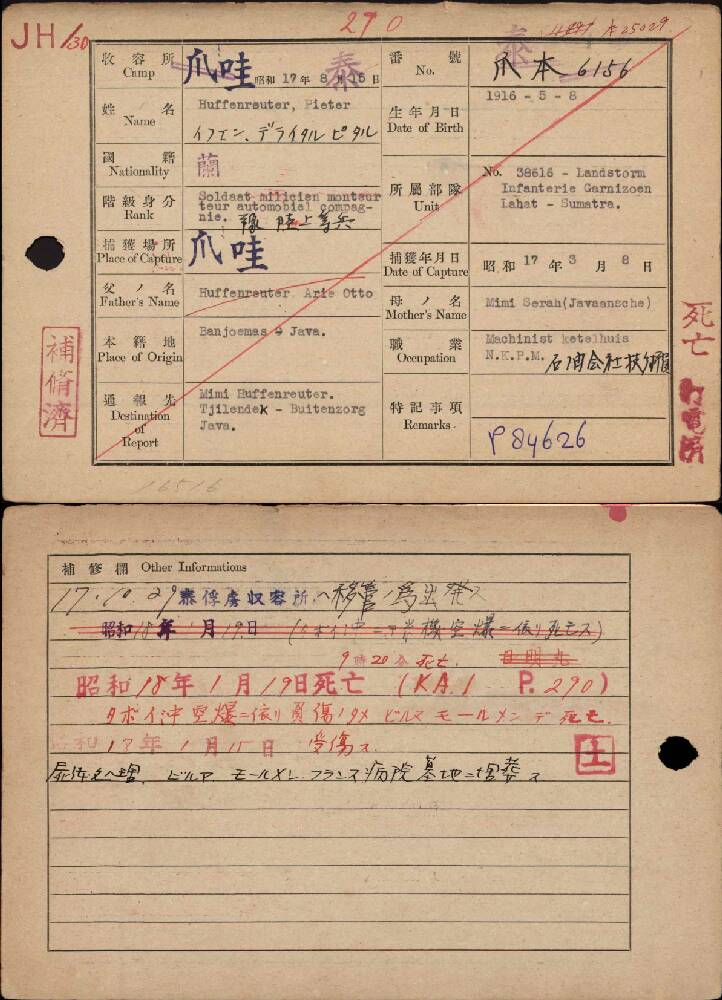 JH/30
270
收容所
Camp
爪哇 昭和17年8月15日
泰
番號
No.
爪本 6156
姓名
Name
Huffenreuter, Pieter
生年月日
Date of Birth
1916 - 5 - 8
國籍
Nationality
蘭
階級身分
Rank
Soldaat milicien monteur
teur automobiel compag-
nie.
所屬部隊
Unit
No. 38616 - Landstorm
Infanterie Garnizoen
Lahat - Sumatra.
捕獲場所
Place of Capture
爪哇
捕獲年月日
Date of Capture
昭和17年3月8日
父ノ名
Father's Name
Huffenreuter Arie Otto
母ノ名
Mother's Name
Mimi Serah(Javaansche)
本籍地
Place of Origin
Banjoemas - Java.
職業
Occupation
Machinist ketelhuis
N.K.P.M.
石油会社
通報先
Destination
of
Report
Mimi Huffenreuter.
Tjilendek - Buitenzorg
Java.
特記事項
Remarks
P 84626
補脩濟
死亡
16516
補修欄 Other Informations
17.10.29 泰俘虜収容所ヘ移管ノ為出発ス
昭和18年1月19日
9時20分 死亡
昭和18年1月19日死亡 (KA.1 P.290)
タボイ沖空爆ニ依リ負傷ノタメ ビルマ モールメンデ死亡.
昭和18年1月15日 受傷ス
ビルマ モールメン フランス病院墓地ニ埋葬ス